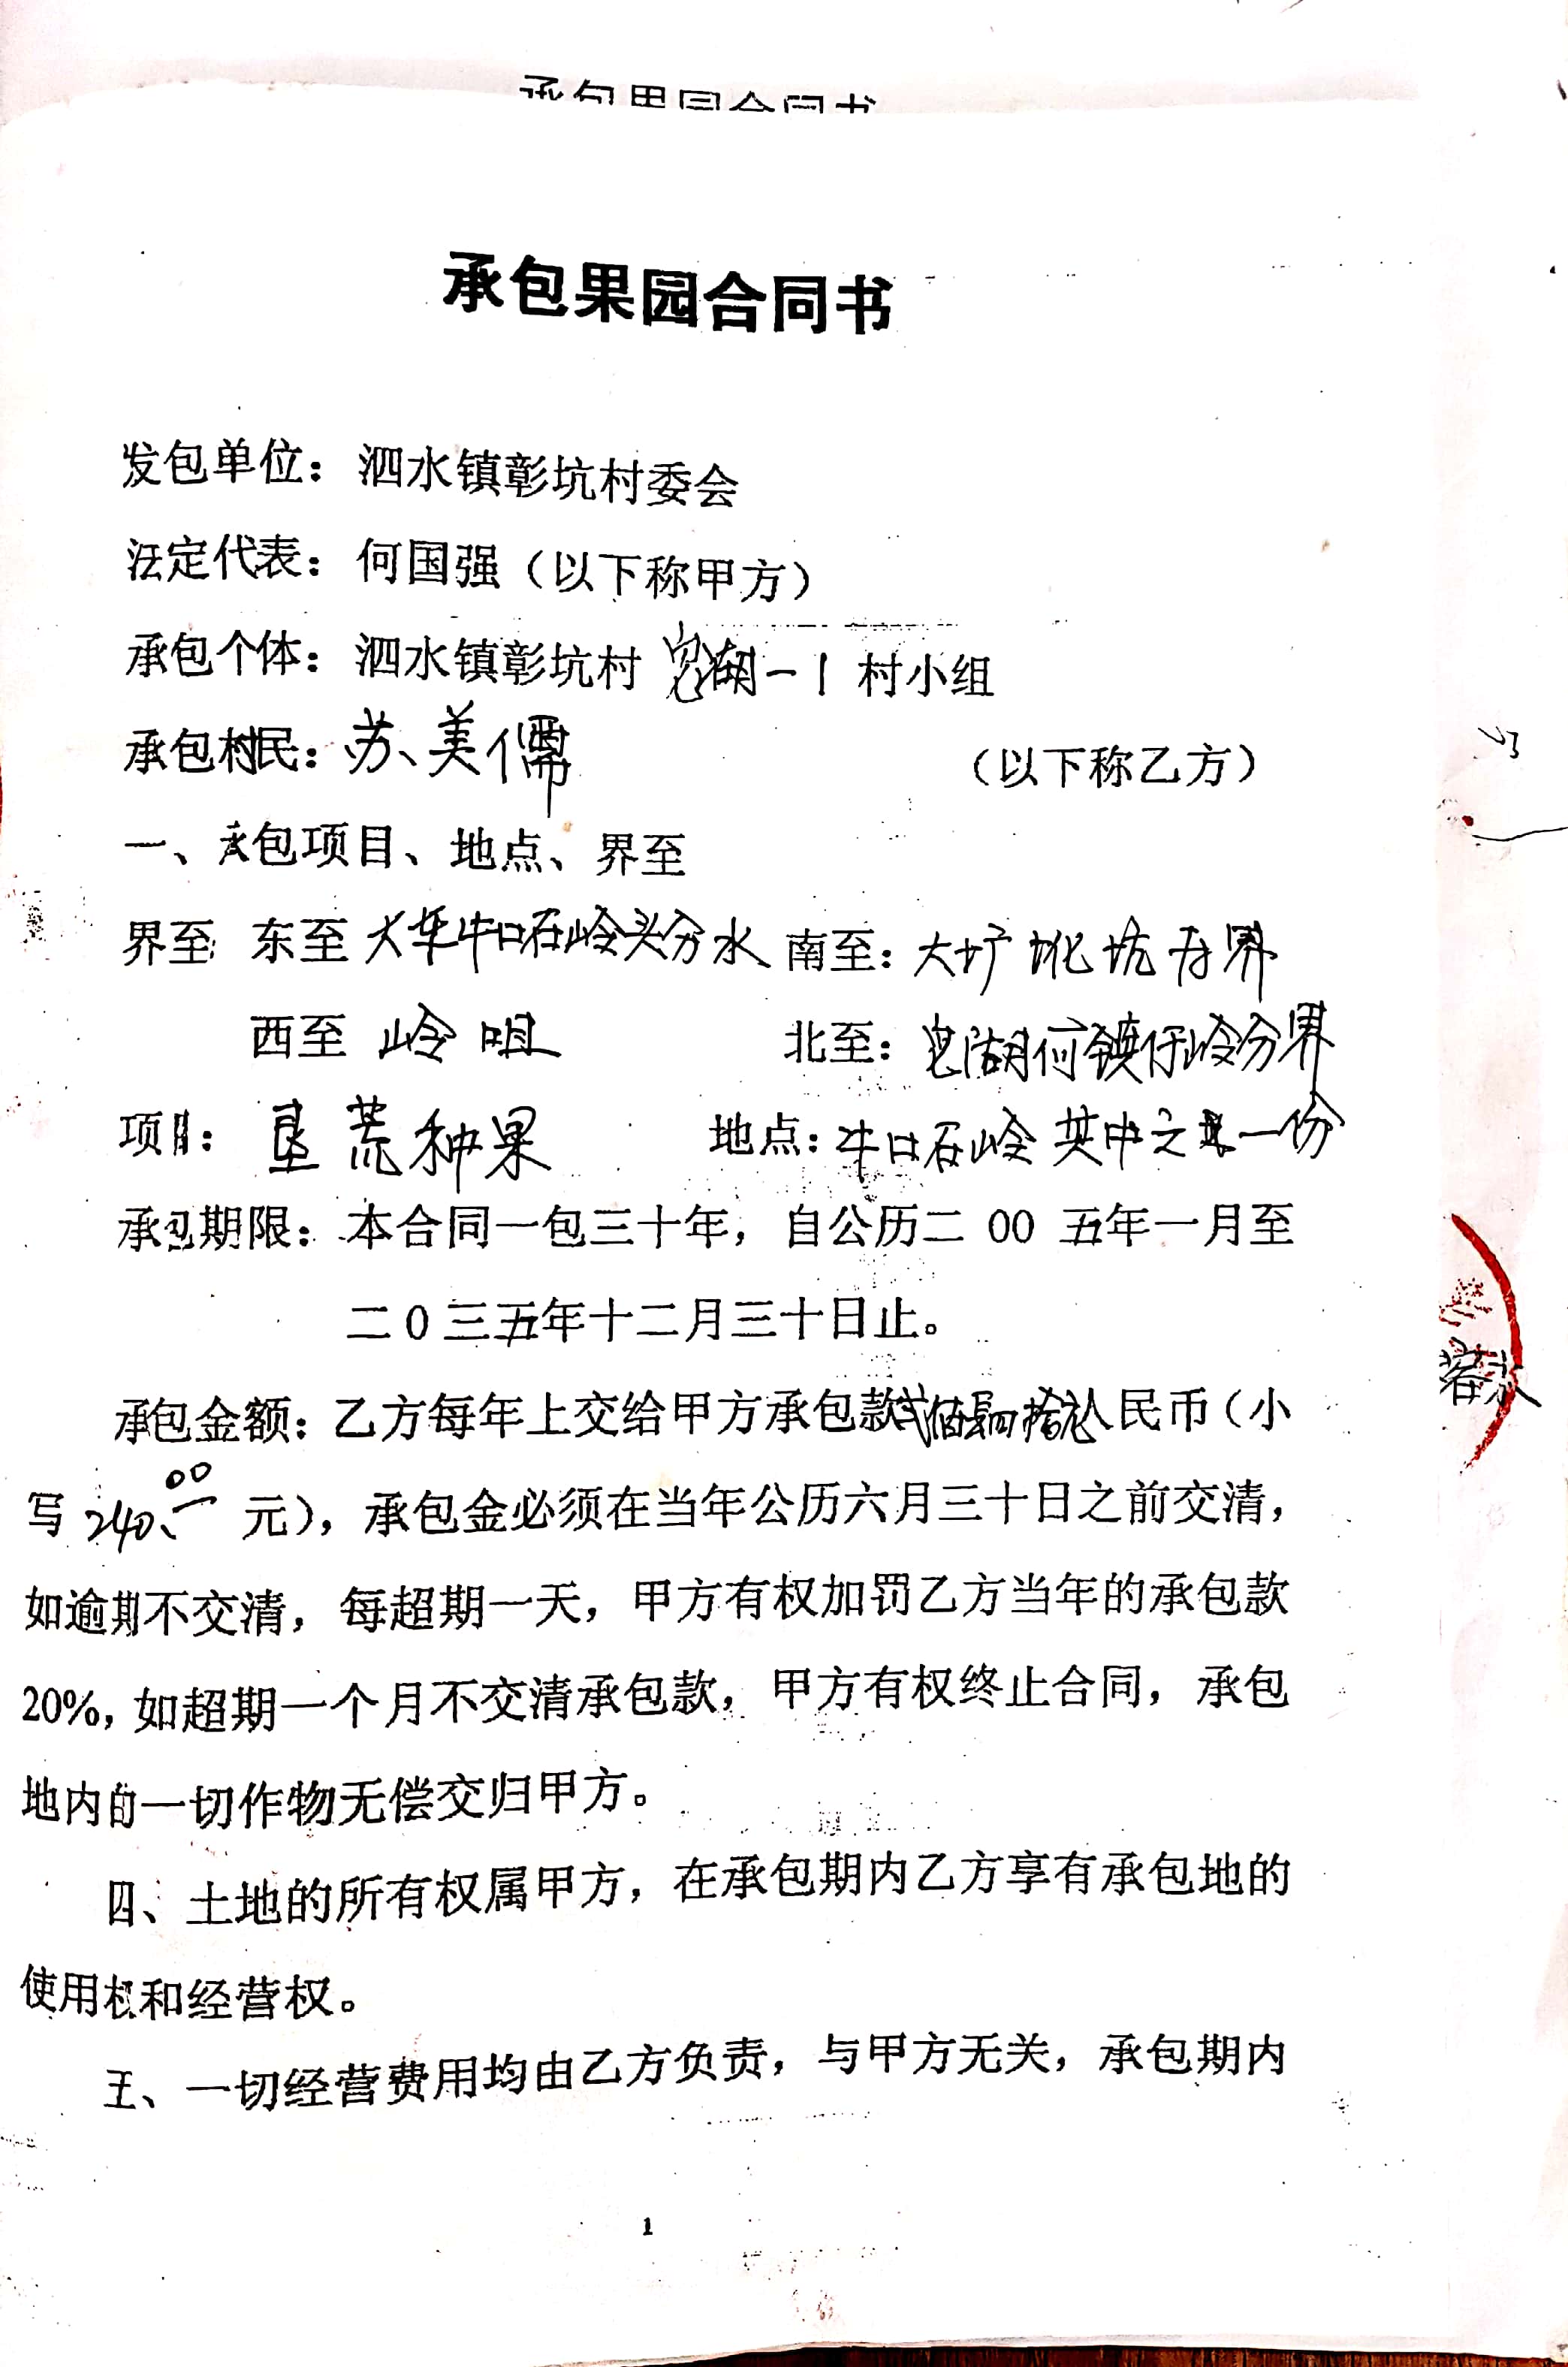 承包果园合同书
承包果园合同书
发包单位：泗水镇彰坑村委会
法定代表：何国强（以下称甲方）
承包个体：泗水镇彰坑村 湖一 村小组
承包村民：苏美儒 （以下称乙方）
一、承包项目、地点、界至
界至 东至 大 牛口石岭头分水 南至：大圹 坑为界
西至 岭咀 北至： 湖何 仔岭分界
项目：垦荒种果 地点：牛口石岭其中之一份
承包期限：本合同一包三十年，自公历二 00 五年一月至
二0三五年十二月三十日止。
承包金额：乙方每年上交给甲方承包款贰佰肆拾元人民币（小
写 240.00 元），承包金必须在当年公历六月三十日之前交清，
如逾期不交清，每超期一天，甲方有权加罚乙方当年的承包款
20%，如超期一个月不交清承包款，甲方有权终止合同，承包
地内的一切作物无偿交归甲方。
四、土地的所有权属甲方，在承包期内乙方享有承包地的
使用权和经营权。
五、一切经营费用均由乙方负责，与甲方无关，承包期内
1